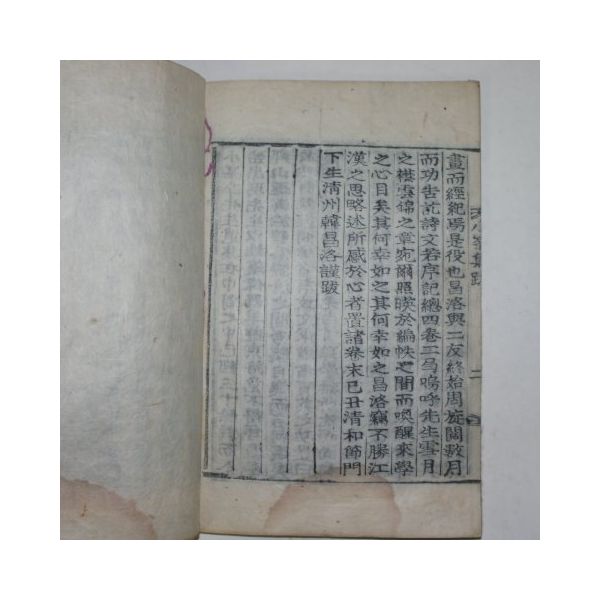 畫而經紀焉是役也昌洛與二友終始周旋閱數月
而功告訖詩文若序記總四卷二冊嗚呼先生雪月
之襟雲錦之章宛爾照暎於編帙之間而喚醒來學
之心目矣其何幸如之其何幸如之昌洛竊不勝江
漢之思略述所感於心者置諸卷末己丑清和節門
下生淸州韓昌洛謹跋
集跋
二